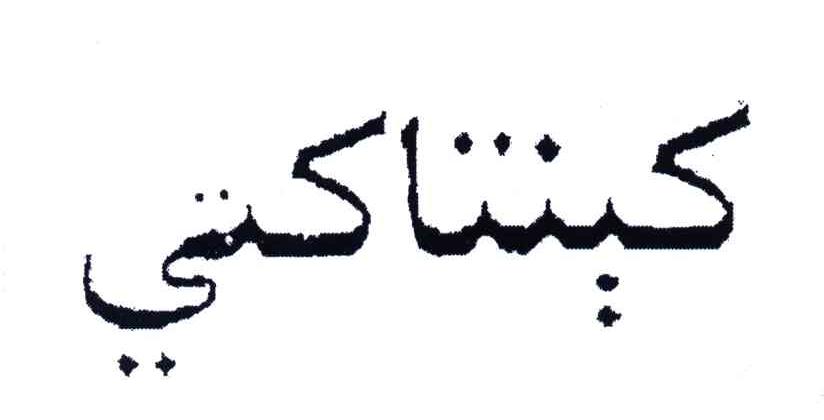 كينتاكتي